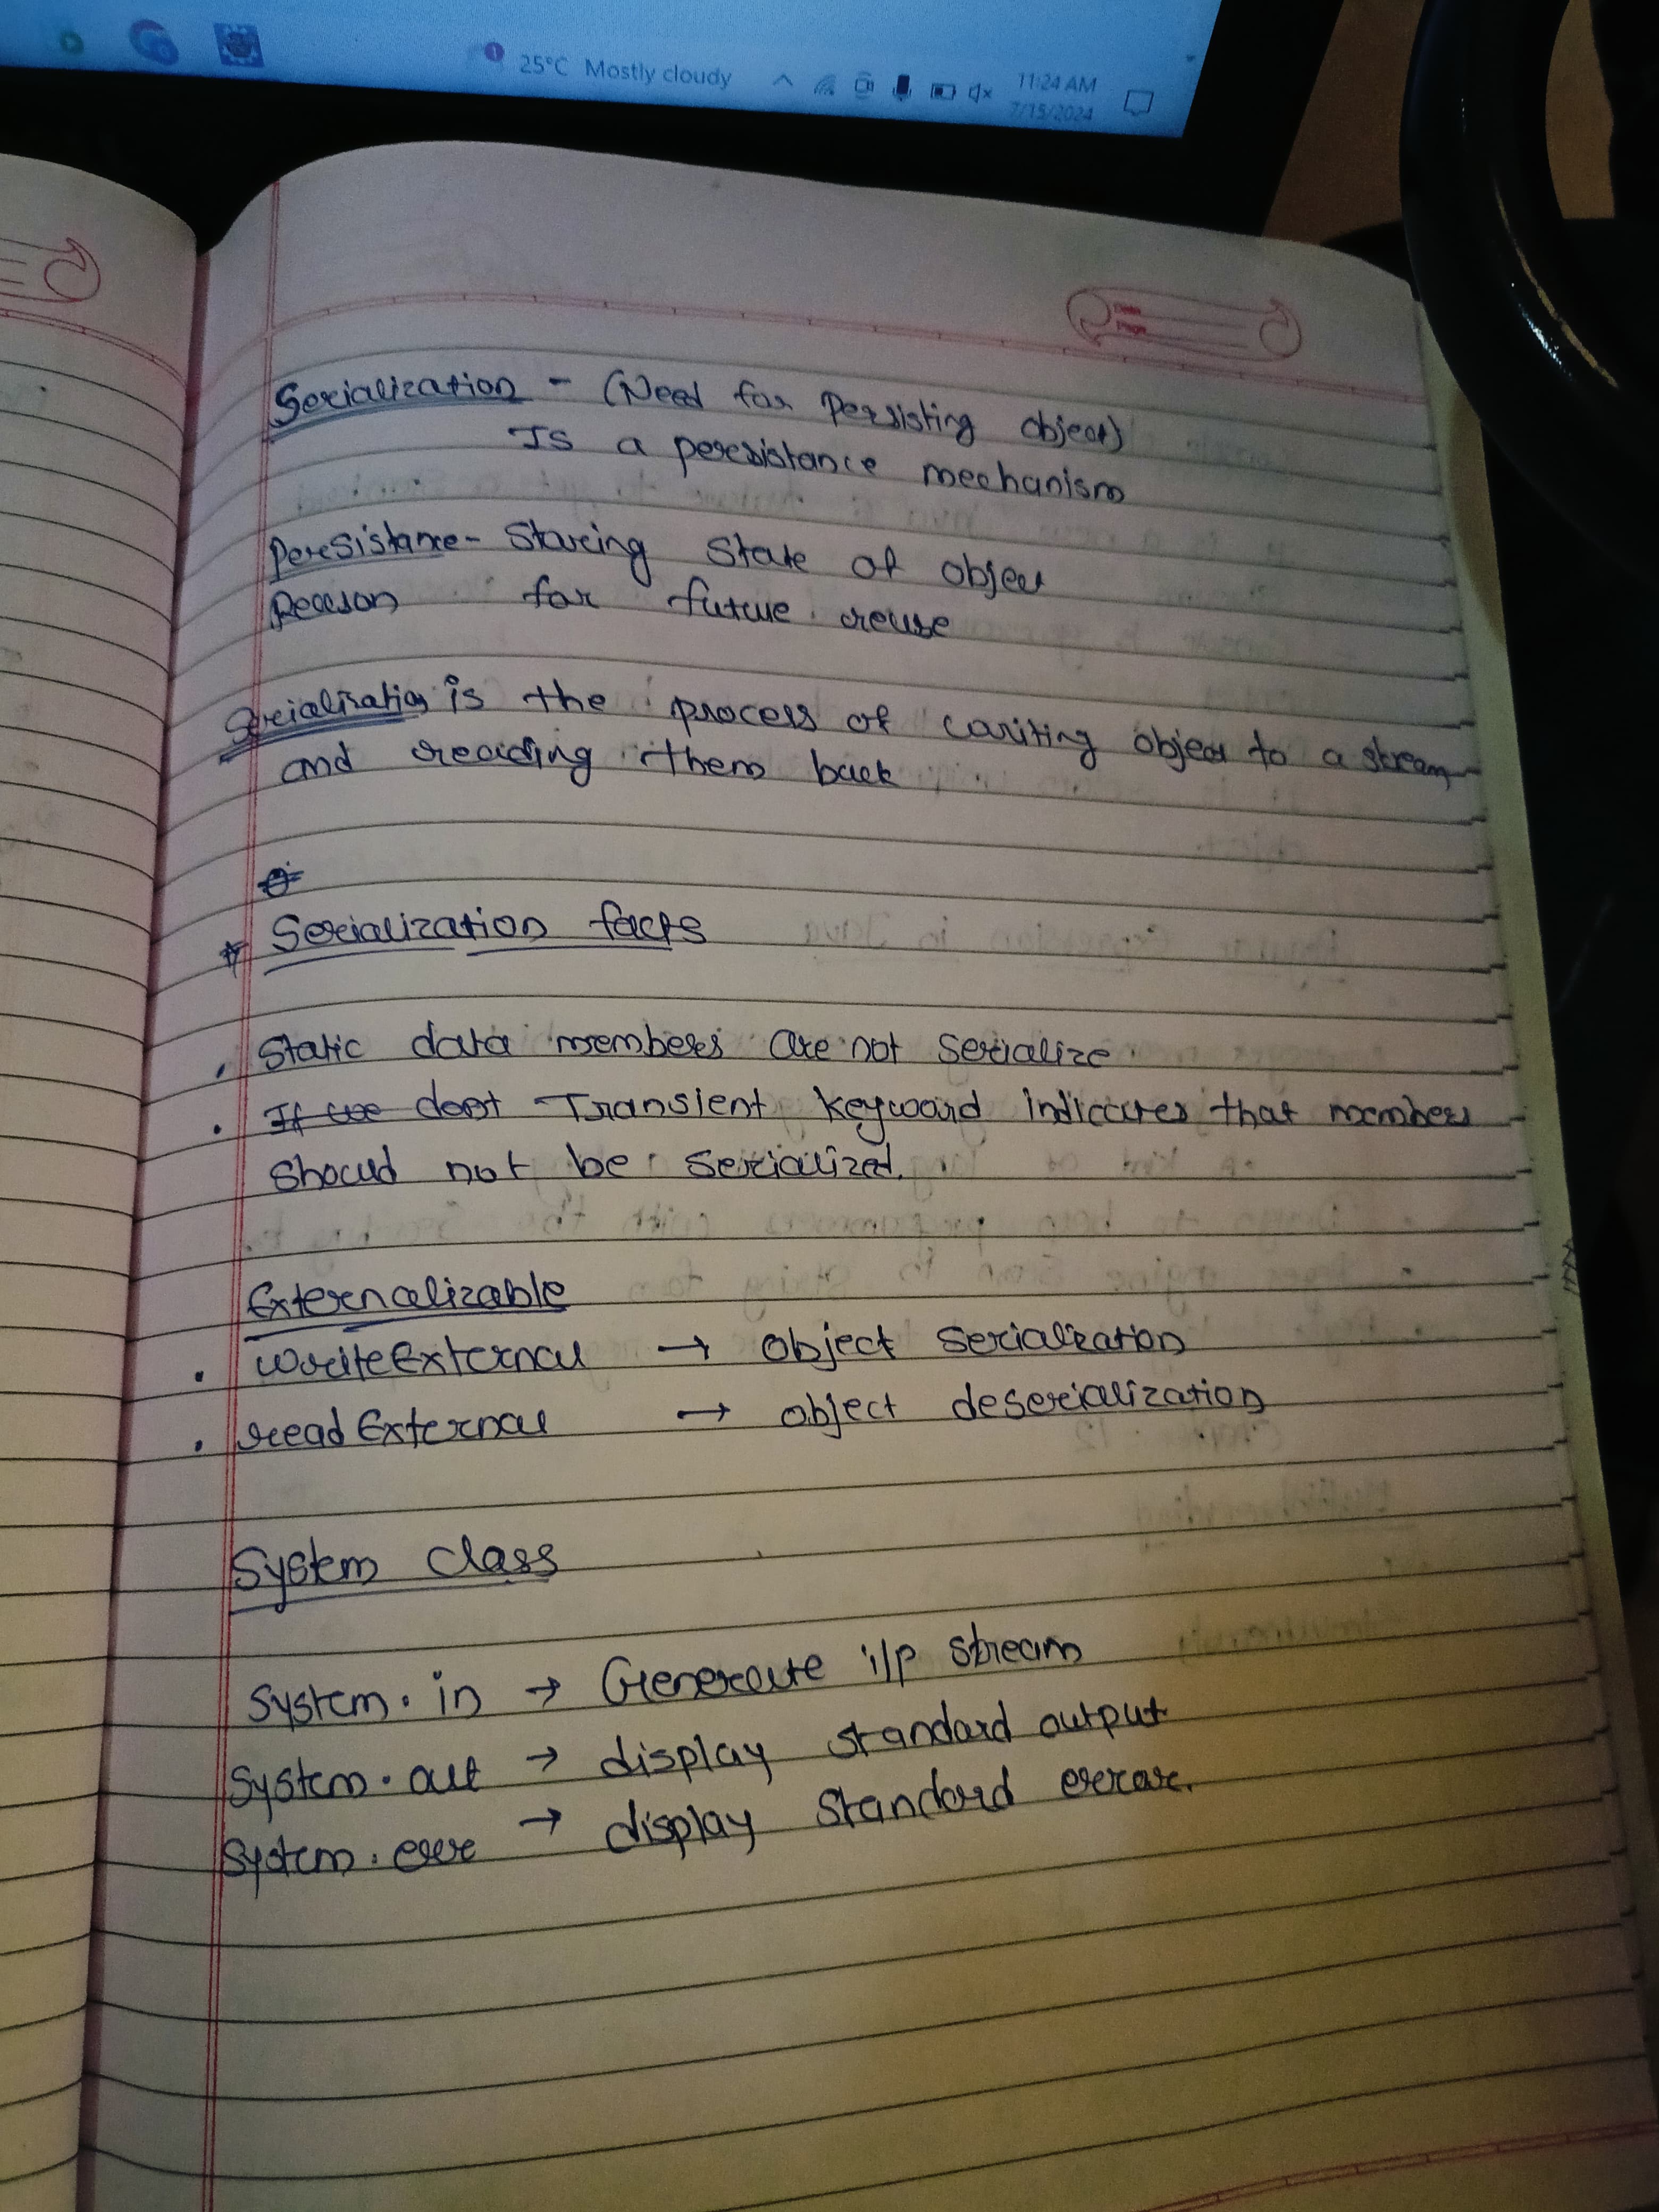 25°C Mostly cloudy
11:24 AM
7/15/2024
Date
Page
Serialization - (Need for Persisting object)
Is a persistance mechanism
Persistance - Storing State of object
Reason for future reuse
Serialization is the process of writing object to a stream
and reading them back
* Serialization facts
. Static data members are not serialize
. If we dont Transient keyword indicates that members
should not be serialized.
Externalizable
. writeExternal → object serialization
. readExternal → object deserialization
System Class
System.in → Generate i/p stream
System.out → display standard output
System.err → display standard error.